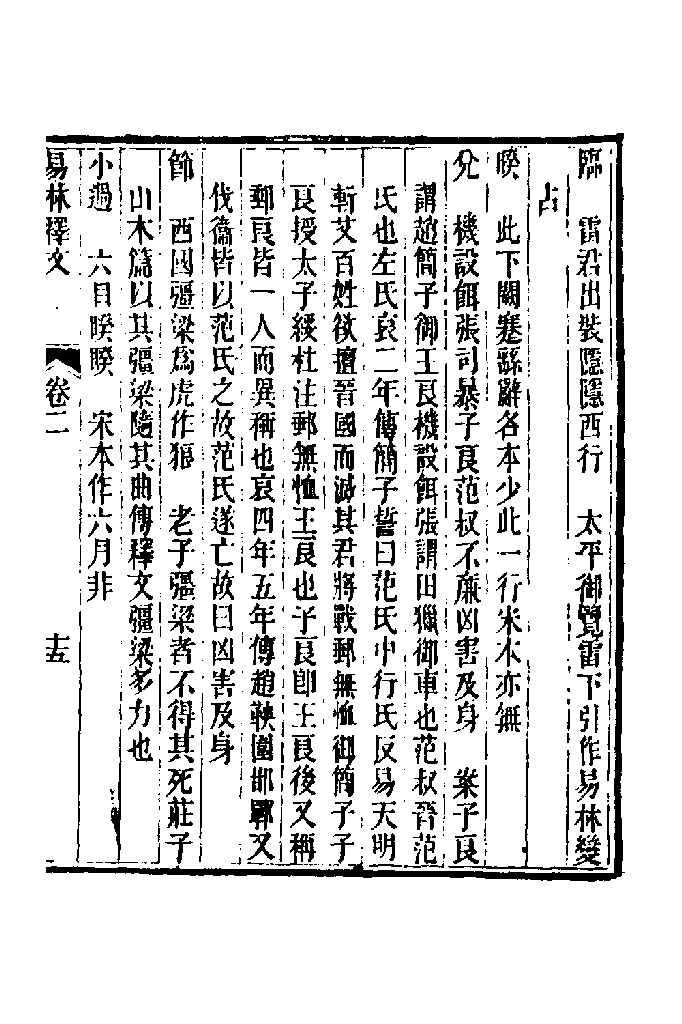 臨　雷君出裝隱隱西行　太平御覽雷下引作易林變
占
睽　此下闕蹇繇辭各本少此一行宋本亦無
兌　機設餌張司暴子良范叔不廉凶害及身　案子良
謂趙簡子御王良機設餌張謂田獵御車也范叔晉范
氏也左氏哀二年傳簡子誓曰范氏中行氏反易天明
斬艾百姓欲擅晉國而滅其君將戰郵無恤御簡子子
良授太子綏杜注郵無恤王良也子良卽王良後又稱
郵良皆一人而異稱也哀四年五年傳趙鞅圍邯鄲又
伐衞皆以范氏之故范氏遂亡故曰凶害及身
節　西國彊梁爲虎作狼　老子彊梁者不得其死莊子
山木篇以其彊梁隨其曲傳釋文彊梁多力也
小過　六目睽睽　宋本作六月非
易林釋文　卷二　十五